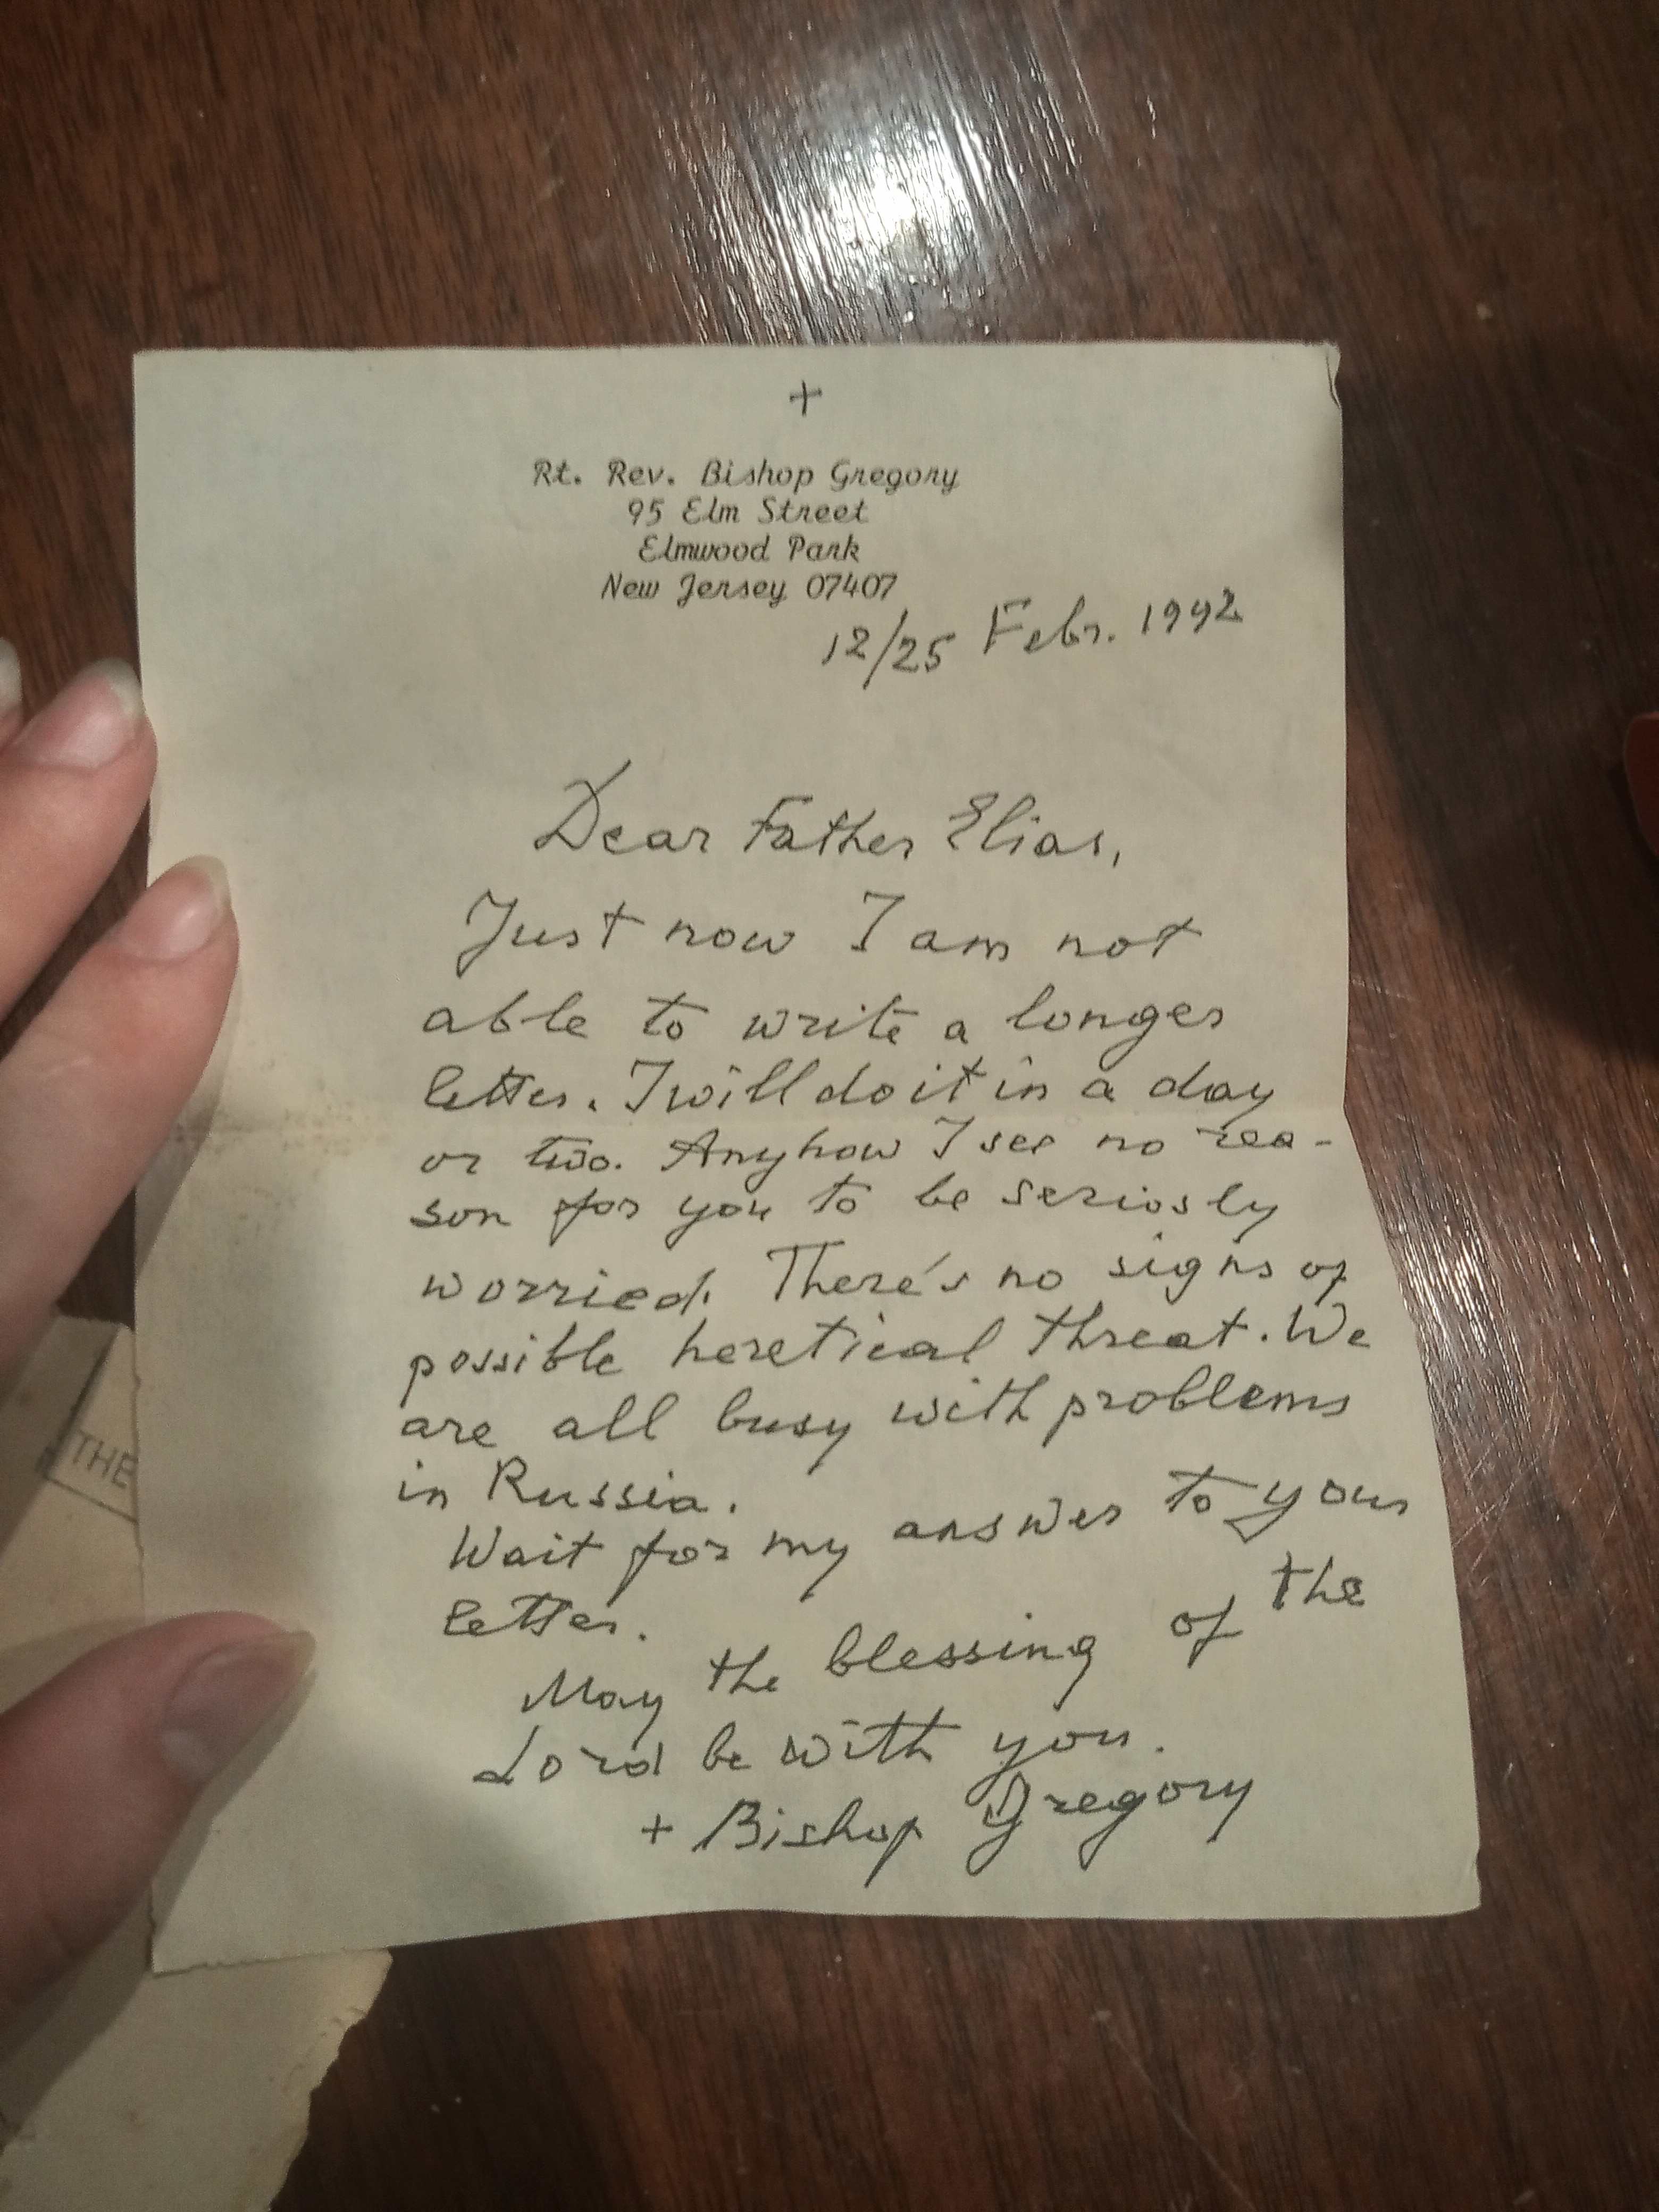 +
Rt. Rev. Bishop Gregory
95 Elm Street
Elmwood Park
New Jersey 07407
12/25 Febr. 1992
Dear Father Elias,
Just now I am not
able to write a longer
letter. I will do it in a day
or two. Anyhow I see no rea-
son for you to be seriosly
worried. There's no signs of
possible heretical threat. We
are all busy with problems
in Russia.
Wait for my answer to your
letter.
May the blessing of the
Lord be with you.
+ Bishop Gregory
THE